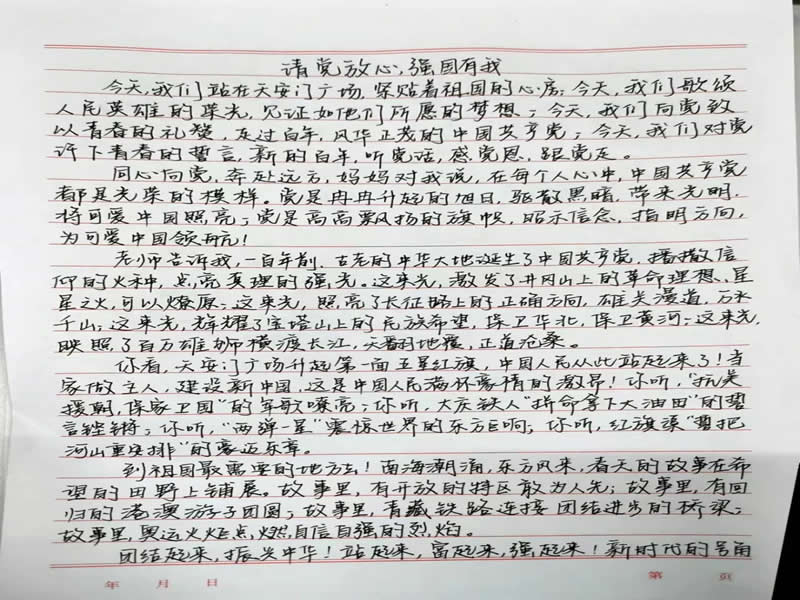 请党放心,强国有我
今天,我们站在天安门广场,紧贴着祖国的心房;今天,我们歌颂
人民英雄的荣光,见证如他们所愿的梦想;今天,我们向党致
以青春的礼赞,走过百年,风华正茂的中国共产党;今天,我们对党
许下青春的誓言,新的百年,听党话,感党恩,跟党走。
同心向党,奔赴远方,妈妈对我说,在每个人心中,中国共产党
都是光荣的模样。党是冉冉升起的旭日,驱散黑暗,带来光明,
将可爱中国照亮;党是高高飘扬的旗帜,昭示信念,指明方向,
为可爱中国领航!
老师告诉我,一百年前,古老的中华大地诞生了中国共产党,播撒信
仰的火种,点亮真理的强光。这束光,激发了井冈山上的革命理想、星
星之火,可以燎原;这束光,照亮了长征路上的正确方向,雄关漫道,万水
千山;这束光,辉耀了宝塔山上的民族希望,保卫华北,保卫黄河;这束光,
映照了百万雄狮横渡长江,天翻地覆,正道沧桑。
你看,天安门广场升起第一面五星红旗,中国人民从此站起来了!当
家做主人,建设新中国,这是中国人民满怀豪情的激昂!你听,"抗美
援朝,保家卫国"的军歌嘹亮;你听,大庆铁人"拼命拿下大油田"的誓
言铿锵;你听,"两弹一星"震惊世界的东方巨响;你听,红旗渠"誓把
河山重安排"的豪迈乐章。
到祖国最需要的地方去!南海潮涌,东方风来,春天的故事在希
望的田野上铺展。故事里,有开放的特区敢为人先;故事里,有回
归的港澳游子团圆;故事里,青藏铁路连接团结进步的桥梁;
故事里,奥运火炬点燃自信自强的烈焰。
团结起来,振兴中华!站起来,富起来,强起来!新时代的号角
年 月 日 第 页